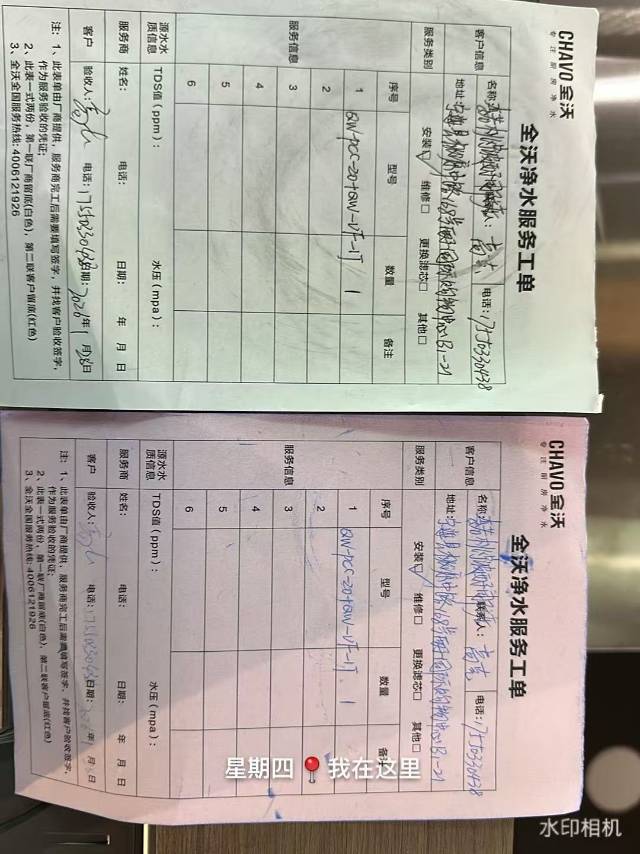 CHAVO全沃
专注厨房净水
全沃净水服务工单
客户信息 名称: 联系人: 电话: 17550330438
地址:
服务类别 安装☑ 维修□ 更换滤芯□ 其他□
服务信息 序号 型号 数量 备注
1 QW-PCC-20+QW-VF-1T 1
2
3
4
5
6
源水水质信息 TDS值 (ppm): 水压 (mpa):
服务商 姓名: 电话: 日期: 年 月 日
客户 验收人: 电话: 日期: 2026年1月8日
注: 1、此表单由厂商提供, 服务商完工后需要填写签字, 并找客户验收签字,
作为服务验收的凭证;
2、此表一式两份, 第一联厂商留底(白色), 第二联客户留底(红色)
3、全沃全国服务热线: 4006121926
CHAVO全沃
专注厨房净水
全沃净水服务工单
客户信息 名称: 联系人: 电话: 17550330438
地址:
服务类别 安装☑ 维修□ 更换滤芯□ 其他□
服务信息 序号 型号 数量 备注
1 QW-PCC-20+QW-VF-1T 1
2
3
4
5
6
源水水质信息 TDS值 (ppm): 水压 (mpa):
服务商 姓名: 电话: 日期: 年 月 日
客户 验收人: 电话: 日期: 年 月 日
注: 1、此表单由厂商提供, 服务商完工后需要填写签字, 并找客户验收签字,
作为服务验收的凭证;
2、此表一式两份, 第一联厂商留底(白色), 第二联客户留底(红色)
3、全沃全国服务热线: 4006121926
星期四 📍 我在这里
水印相机